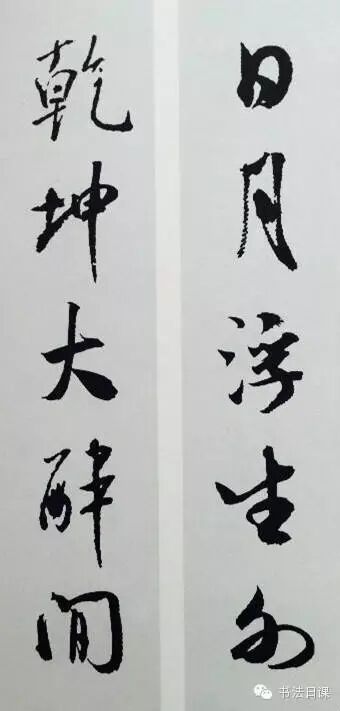 日月浮生外
乾坤大醉间
书法日课